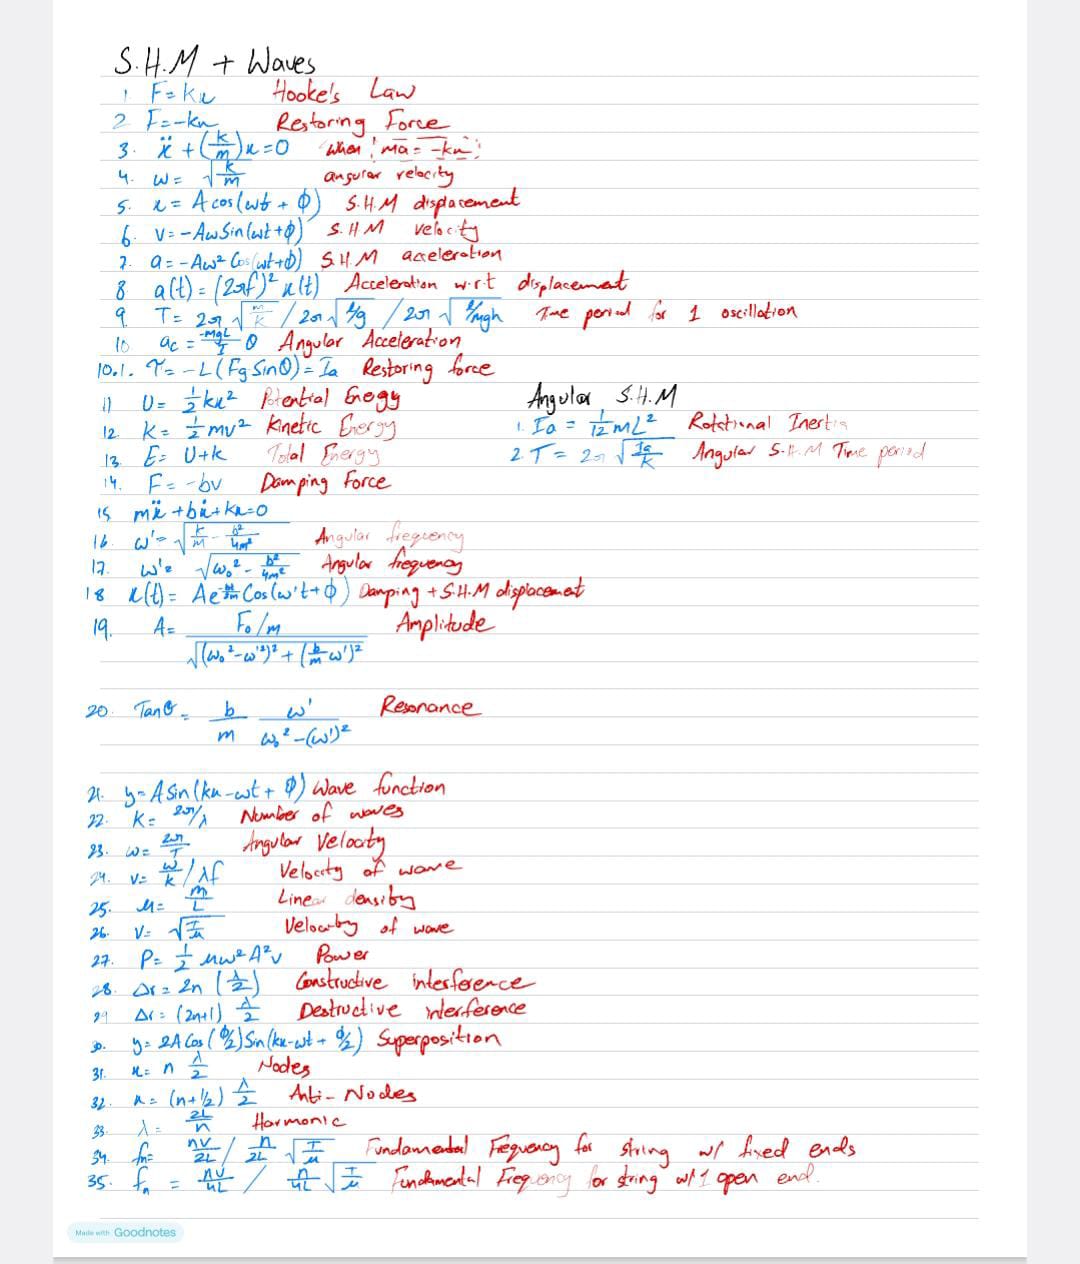 S.H.M + Waves
1. F=kx Hooke's Law
2. F=-kx Restoring Force
3. ẍ + (k/m)x=0 When ma = -kx
4. ω = √(k/m) angular velocity
5. x = A cos(ωt + φ) S.H.M displacement
6. v=-Aω Sin(ωt+φ) S.H.M velocity
7. a=-Aω² Cos(ωt+φ) S.H.M acceleration
8 a(t) = (2πf)² x(t) Acceleration w.r.t displacement
9. T= 2π √(m/k) / 2π √(l/g) / 2π √(I/mgh) Time period for 1 oscillation
10 ac = -MgL/I θ Angular Acceleration
10.1. τ= -L (Fg Sinθ) = Ia Restoring force
11 U= 1/2 kx² Potential Energy
12. K= 1/2 mv² Kinetic Energy
13. E= U+k Total Energy
Angular S.H.M
1. Ia = 1/12 mL² Rotational Inertia
2. T = 2π √(Ia/K) Angular S.H.M Time period
14. F= -bv Damping Force
15 mẍ + bẋ + kx=0
16. ω'= √(k/m - b²/4m²) Angular frequency
17. ω'= √(ω₀² - b²/4m²) Angular frequency
18 x(t) = Ae^(-bt/2m) Cos(ω't+φ) Damping + S.H.M displacement
19. A= F₀/m / √((ω₀²-ω'²)² + (b/m ω')²) Amplitude
20. Tanθ = b/m ω'/ω₀²-(ω')² Resonance
21. y= A Sin(kx-ωt + φ) Wave function
22. K= 2π/λ Number of waves
23. ω= 2π/T Angular Velocity
24. v= ω/k / λf Velocity of wave
25. μ= m/L Linear density
26. V= √(T/μ) Velocity of wave
27. P= 1/2 μω²A²v Power
28. Δr = 2n (λ/2) Constructive interference
29 Δr= (2n+1) λ/2 Destructive interference
30. y= 2A Cos(φ/2) Sin(kx-ωt + φ/2) Superposition
31. x= n λ/2 Nodes
32. x= (n+1/2) λ/2 Anti-Nodes
33. λ= 2L/n Harmonic
34. fn= nv/2L / n/2L √(T/μ) Fundamental Frequency for string w/ fixed ends
35. fn = nv/4L / n/4L √(T/μ) Fundamental Frequency for string w/ 1 open end.
Made with Goodnotes